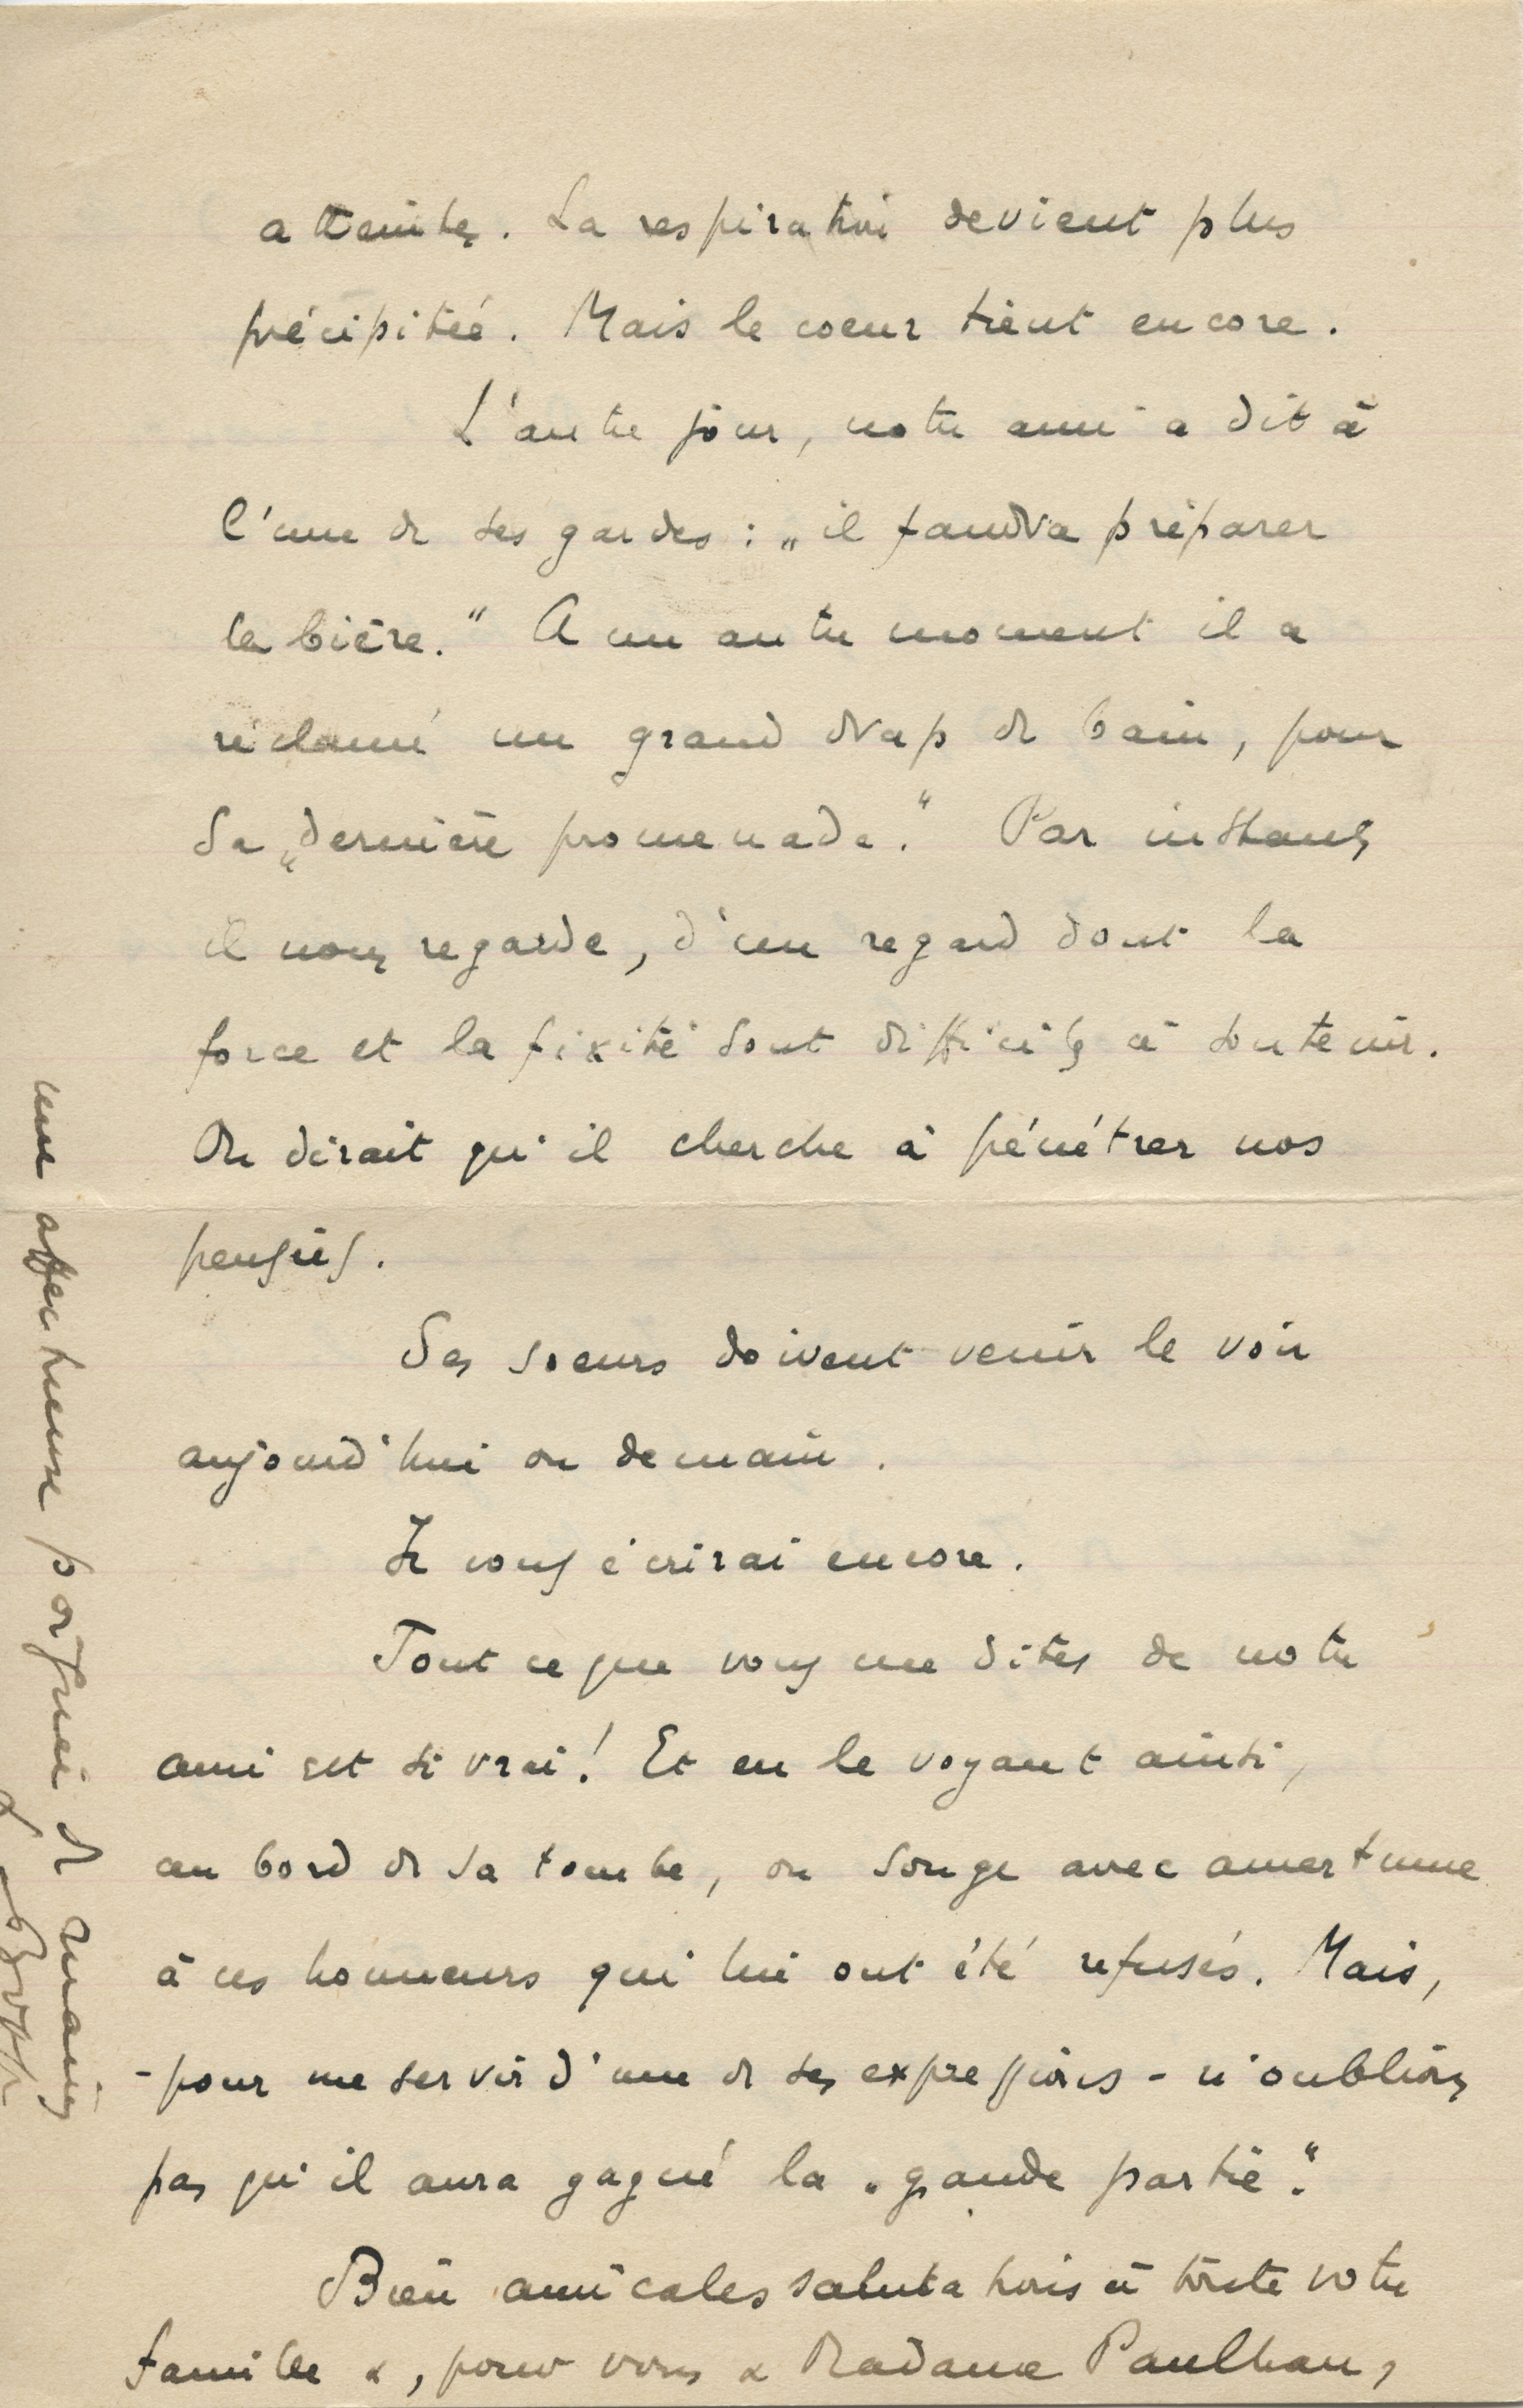 atteintes. La respiration devient plus
précipitée. Mais le coeur tient encore.
L'autre jour, notre ami a dit à
l'une de ses gardes : „il faudra préparer
la bière.“ A un autre moment il a
réclamé un grand drap de bain, pour
sa „dernière promenade.“ Par instants
il nous regarde, d'un regard dont la
force et la fixité sont difficiles à soutenir.
On dirait qu'il cherche à pénétrer nos
pensées.
Ses soeurs doivent venir le voir
aujourd'hui ou demain.
Je vous écrirai encore.
Tout ce que vous me dites de notre
ami est si vrai! Et en le voyant ainsi,
au bord de sa tombe, on songe avec amertume
à ces honneurs qui lui ont été refusés. Mais,
- pour me servir d'une de ses expressions - n'oublions
pas qu'il aura gagné la „grande partie“.
Bien amicales salutations à toute votre
famille &, pour vous & Madame Paulhan,
une affectueuse poignée de mains